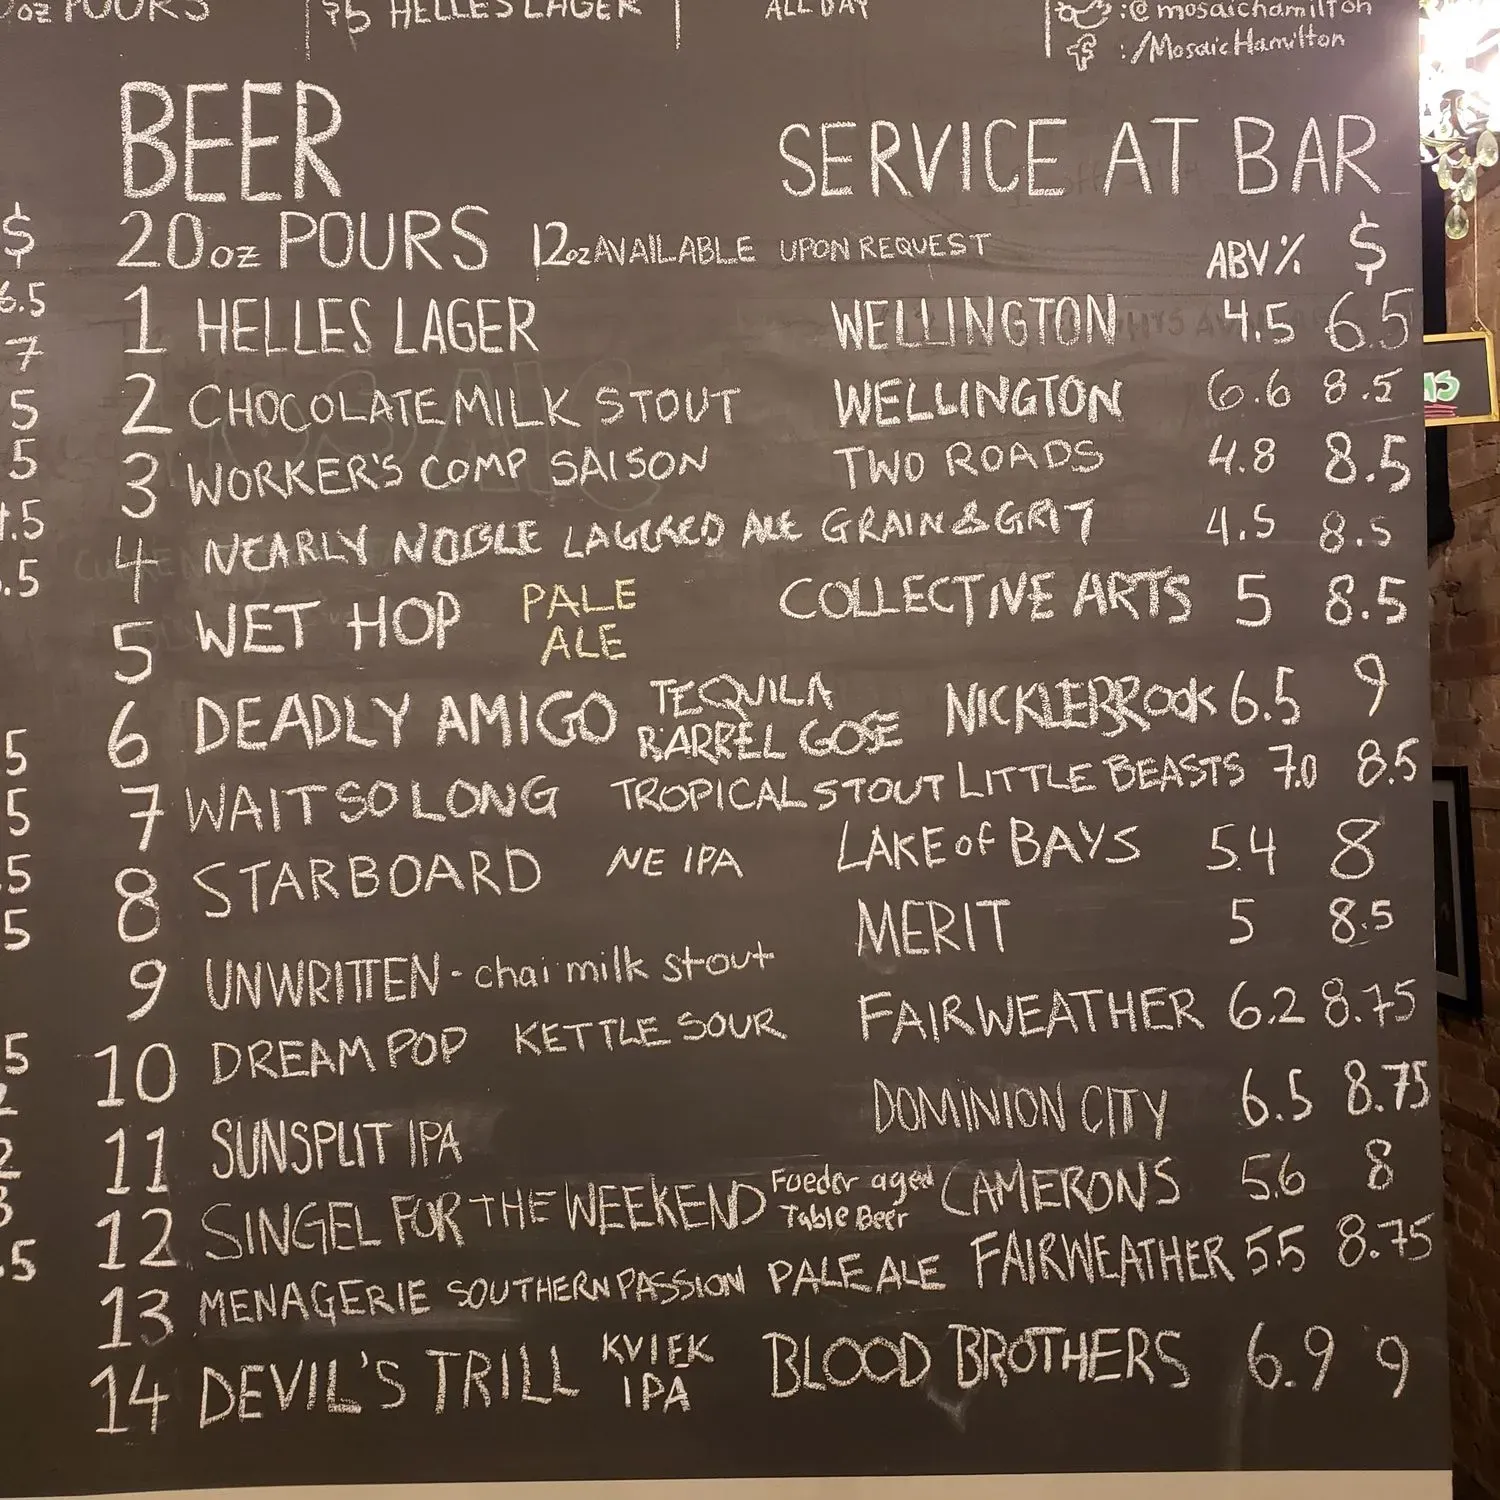 $5 HELLES LAGER
ALL DAY
:@mosaichamilton
:/MosaicHamilton
BEER
SERVICE AT BAR
20oz POURS 12oz AVAILABLE UPON REQUEST ABV% $
1 HELLES LAGER WELLINGTON 4.5 6.5
2 CHOCOLATE MILK STOUT WELLINGTON 6.6 8.5
3 WORKER'S COMP SAISON TWO ROADS 4.8 8.5
4 NEARLY NOBLE LAGERED ALE GRAIN & GRIT 4.5 8.5
5 WET HOP PALE ALE COLLECTIVE ARTS 5 8.5
6 DEADLY AMIGO TEQUILA BARREL GOSE NICKLEBROOK 6.5 9
7 WAIT SO LONG TROPICAL STOUT LITTLE BEASTS 7.0 8.5
8 STARBOARD NE IPA LAKE of BAYS 5.4 8
9 UNWRITTEN - chai milk stout MERIT 5 8.5
10 DREAM POP KETTLE SOUR FAIRWEATHER 6.2 8.75
11 SUNSPLIT IPA DOMINION CITY 6.5 8.75
12 SINGEL FOR THE WEEKEND Foeder aged Table Beer CAMERONS 5.6 8
13 MENAGERIE SOUTHERN PASSION PALE ALE FAIRWEATHER 5.5 8.75
14 DEVIL'S TRILL KVIEK IPA BLOOD BROTHERS 6.9 9